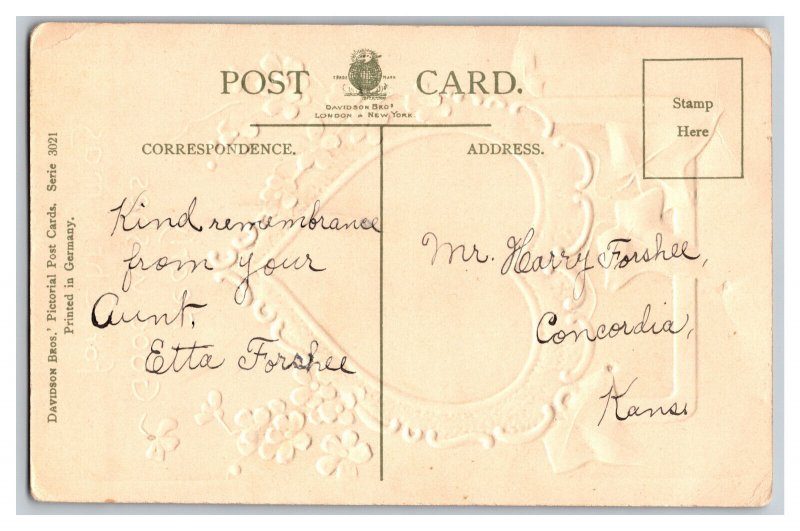 POST CARD.
TRADE MARK
DAVIDSON BROS
LONDON & NEW YORK
CORRESPONDENCE.
ADDRESS.
Stamp
Here
DAVIDSON BROS.' Pictorial Post Cards. Serie 3021
Printed in Germany.
Kind remembrance
from your
Aunt,
Etta Forshee
Mr. Harry Forshee,
Concordia,
Kans.